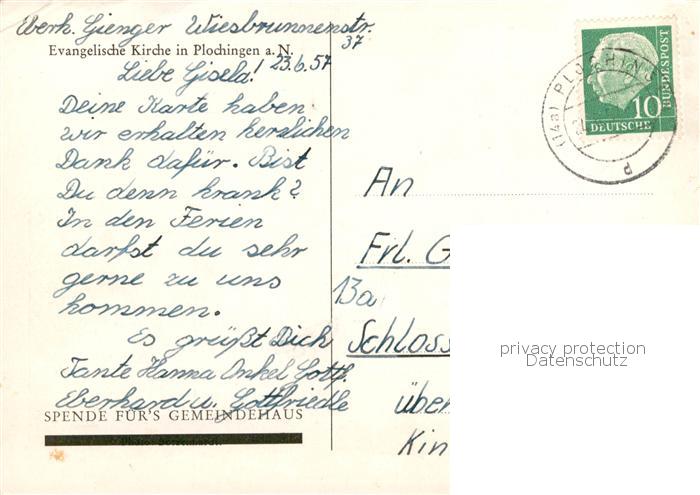 Eberh. Gienger Wiesbrunnenstr.
37
Evangelische Kirche in Plochingen a. N.
23.6.57
Liebe Gisela!
Deine Karte haben
wir erhalten herzlichen
Dank dafür. Bist
Du denn krank?
In den Ferien
darfst du sehr
gerne zu uns
kommen.
Es grüßt Dich
Tante Hanna Onkel Gottf.
Eberhard u. Gottfriedle
SPENDE FÜR'S GEMEINDEHAUS
10
DEUTSCHE
BUNDESPOST
(14a) PLOCHING
d
An
Frl. G
13a
Schloss
über
Kin
privacy protection
Datenschutz